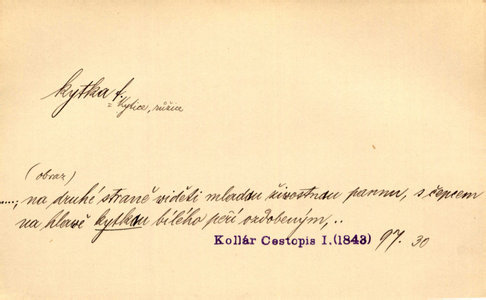 kytka f.
= kytice, růžice
(obraz)
....., na druhé straně viděti mladou živostnou pannu, s čepcem
na hlavě kytkou bílého péří ozdobeným, ..
Kollár Cestopis I. (1843) 97. 30